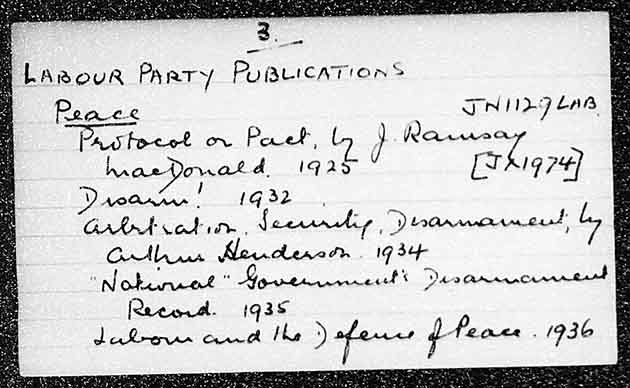 3.
LABOUR PARTY PUBLICATIONS
Peace JN1129 LAB.
Protocol or Pact, by J. Ramsay
MacDonald. 1925 [JX1974]
Disarm! 1932
Arbitration, Security, Disarmament, by
Arthur Henderson. 1934
"National" Government's Disarmament
Record. 1935
Labour and the Defence of Peace. 1936